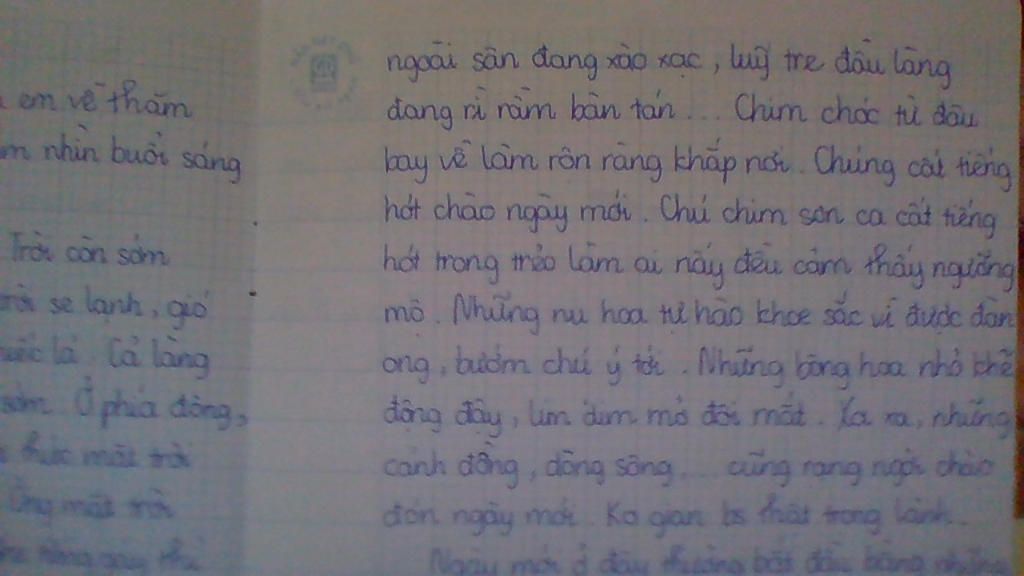 em về thăm
nhìn buổi sáng
Trời còn sớm
se lạnh, gió
lá. Cả làng
sớm. Ở phía đông,
thức mặt trời
Ông mặt trời
ngoài sân đang xào xạc, luỹ tre đầu làng
đang rì rầm bàn tán... Chim chóc từ đâu
bay về làm rộn ràng khắp nơi. Chúng cất tiếng
hót chào ngày mới. Chú chim sơn ca cất tiếng
hót trong trẻo làm ai nấy đều cảm thấy ngưỡng
mộ. Những nụ hoa tự hào khoe sắc vì được đàn
ong, bướm chú ý tới. Những bông hoa nhỏ khẽ
động đậy, lim dim mở đôi mắt. Xa xa, những
cánh đồng, dòng sông,... cũng rạng ngời chào
đón ngày mới. Ko gian bs thật trong lành.
Ngày mới ở đây thường bắt đầu bằng những